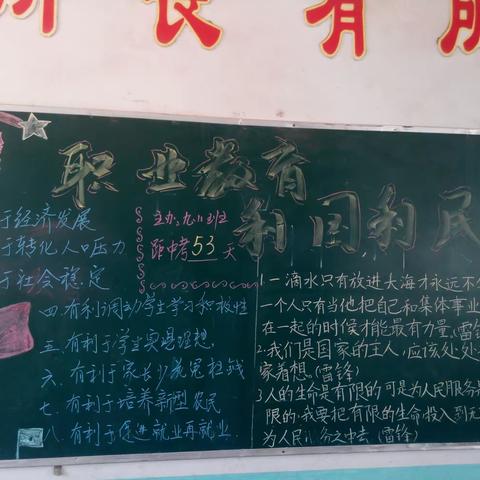 所长有所
职业教育
利国利民
于经济发展
于转化人口压力
于社会稳定
主办:九八班
距中考53天
四.有利调动学生学习积极性
五.有利于学生实现理想.
六.有利于家长少花冤枉钱
七.有利于培养新型农民
八.有利于促进就业再就业.
1一滴水只有放进大海才永远不
一个人只有当他把自己和集体事业
在一起的时候才能最有力量。(雷
2.我们是国家的主人,应该处处
家着想。(雷锋)
3人的生命是有限的可是为人民服务是
限的.我要把有限的生命,投入到无
为人民服务之中去(雷锋)